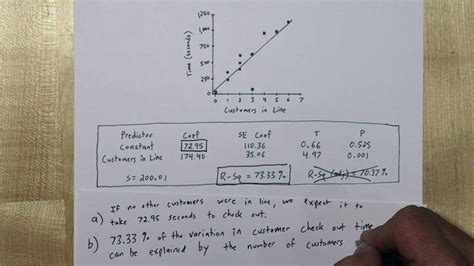 Time (seconds)
1,250
1,000
750
500
250
0
0 1 2 3 4 5 6 7
Customers in Line
Predictor Coef SE Coef T P
Constant 72.95 110.36 0.66 0.525
Customers in Line 174.40 35.06 4.97 0.001
S = 200.01 R-Sq = 73.33 % R-Sq (adj) = 70.37 %
a) If no other customers were in line, we expect it to
take 72.95 seconds to check out.
b) 73.33 % of the variation in customer check out time
can be explained by the number of customers